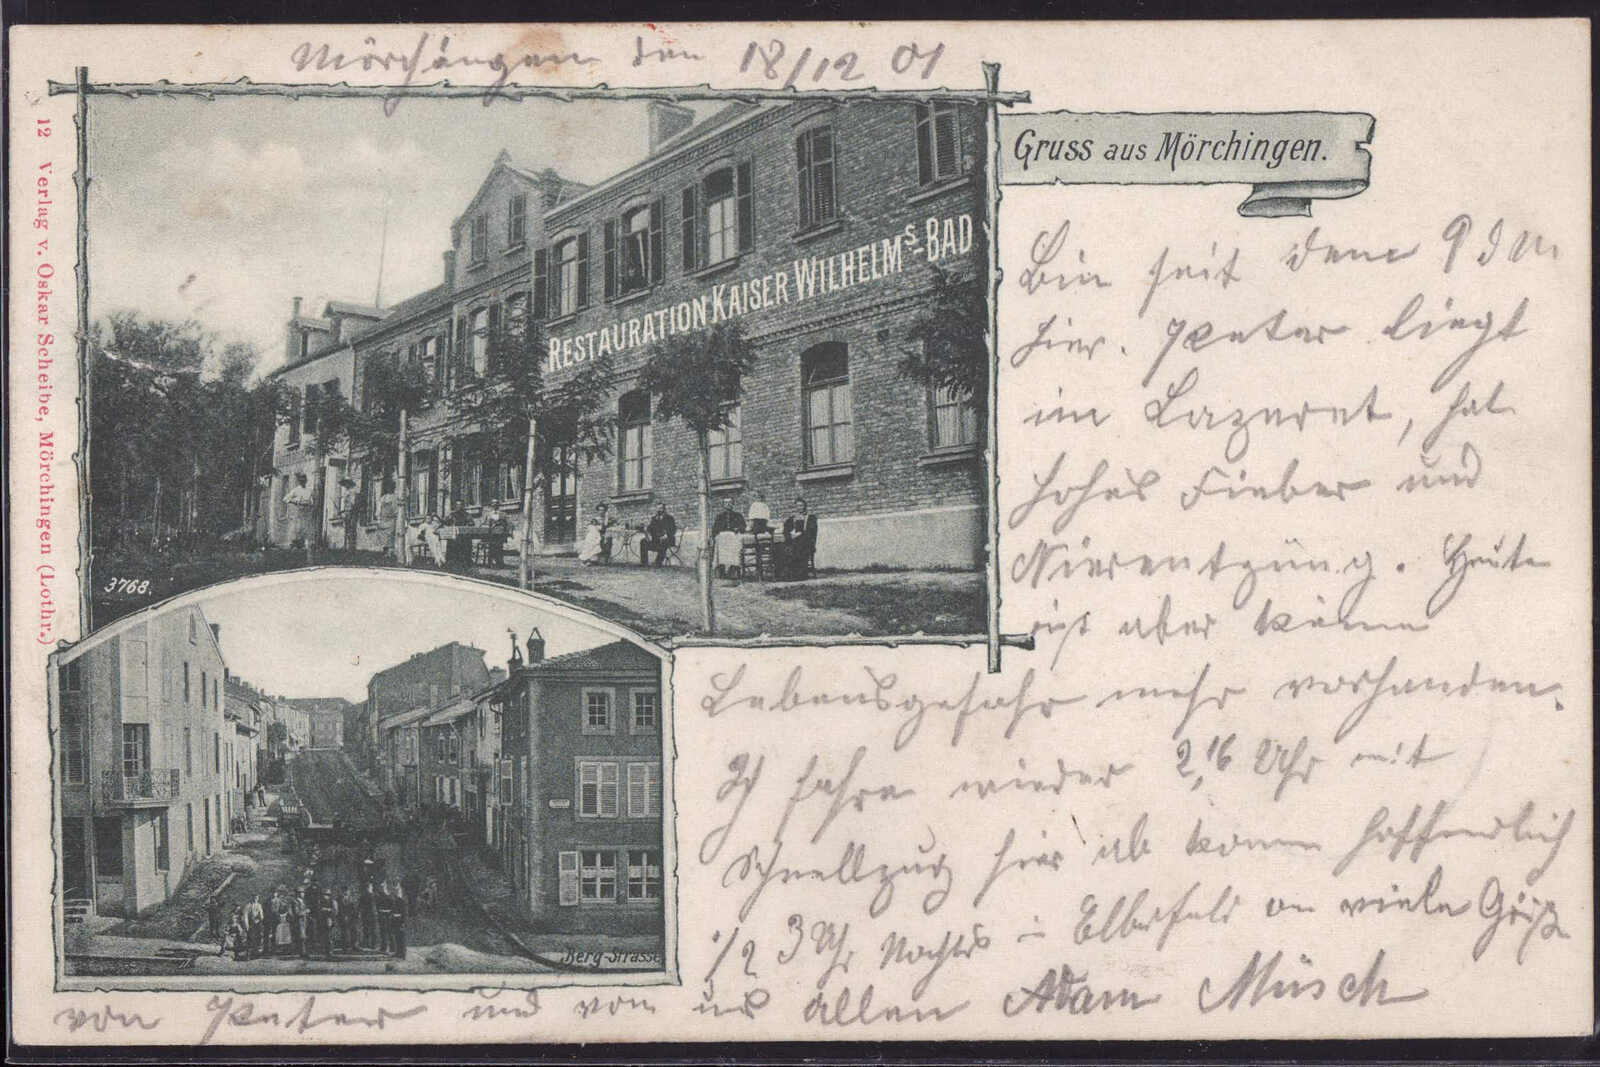 Mörchingen den 18/12 01
Gruss aus Mörchingen.
12 Verlag v. Oskar Scheibe, Mörchingen (Lothr.)
RESTAURATION KAISER WILHELMS-BAD
3768.
Berg-Strasse
Bin seit dem 9 d M
hier. Peter liegt
im Lazaret, hat
hohes Fieber und
Nierentzüng. Heute
ist aber keine
Lebensgefahr mehr vorhanden.
Ich fahre wieder 2,16 Uhr mit
Schnellzug hier ab komme hoffendlich
1/2 3 Uhr Nachts in Elberfeld an viele Grüße
von Peter und von uns allen Adam Müsch